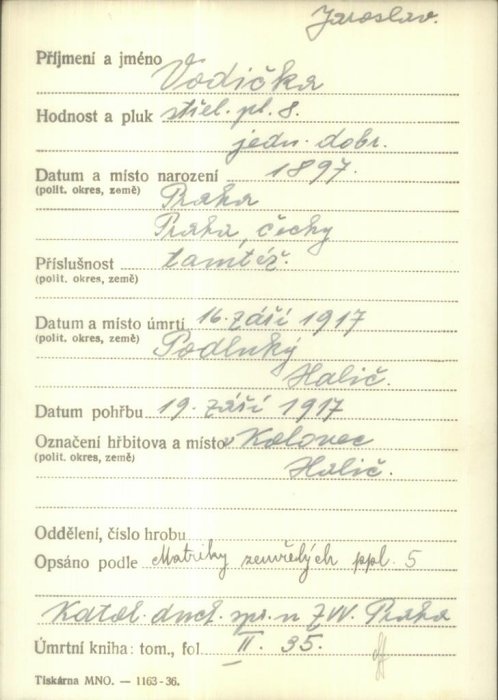 Jaroslav.
Příjmení a jméno Vodička
Hodnost a pluk střel. pl. 8.
jedn. dobr.
Datum a místo narození 1897.
(polit. okres, země) Praha
Praha, čechy
Příslušnost tamtéž.
(polit. okres, země)
Datum a místo úmrtí 16. září 1917
(polit. okres, země) Podluhy
Halič.
Datum pohřbu 19. září 1917
Označení hřbitova a místo Kolovec
(polit. okres, země) Halič.
Oddělení, číslo hrobu
Opsáno podle Matriky zemřelých ppl. 5
Katol. duch. spr. n ZW. Praha
Úmrtní kniha: tom., fol. II. 35.
Tiskárna MNO. — 1163-36.